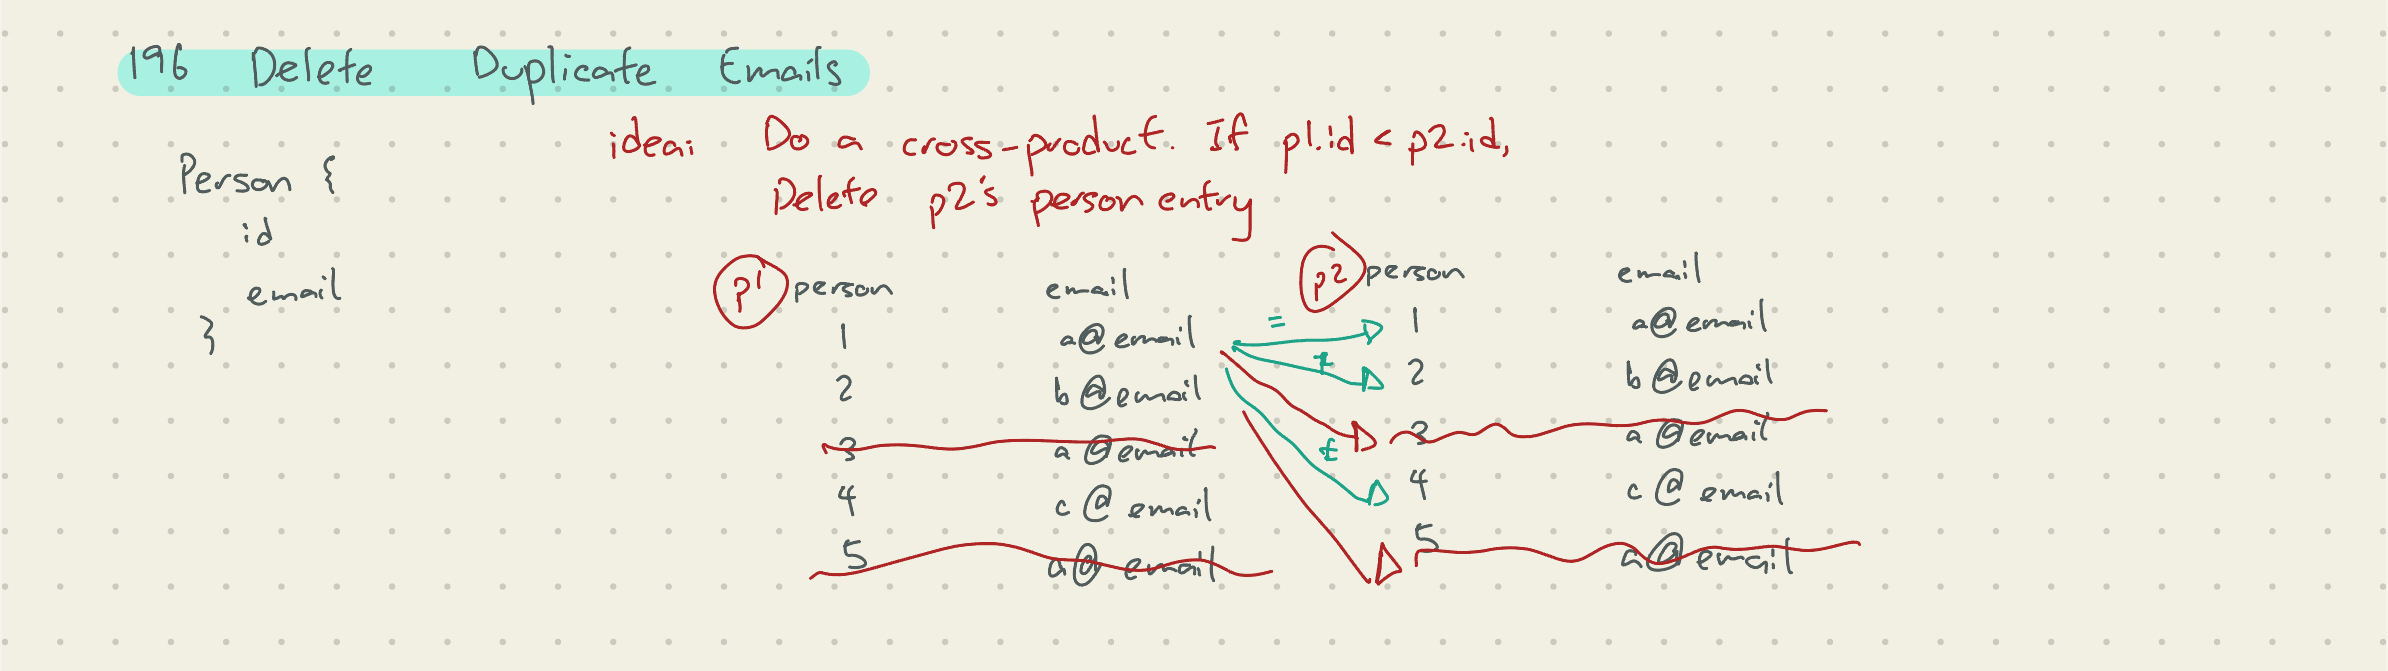 196 Delete Duplicate Emails
idea: Do a cross-product. If p1.id < p2.id,
Delete p2's person entry
Person {
id
email
}
p1 person email
1 a@email
2 b@email
3 a@email
4 c@email
5 a@email
= 
≠
≠
p2 person email
1 a@email
2 b@email
3 a@email
4 c@email
5 a@email